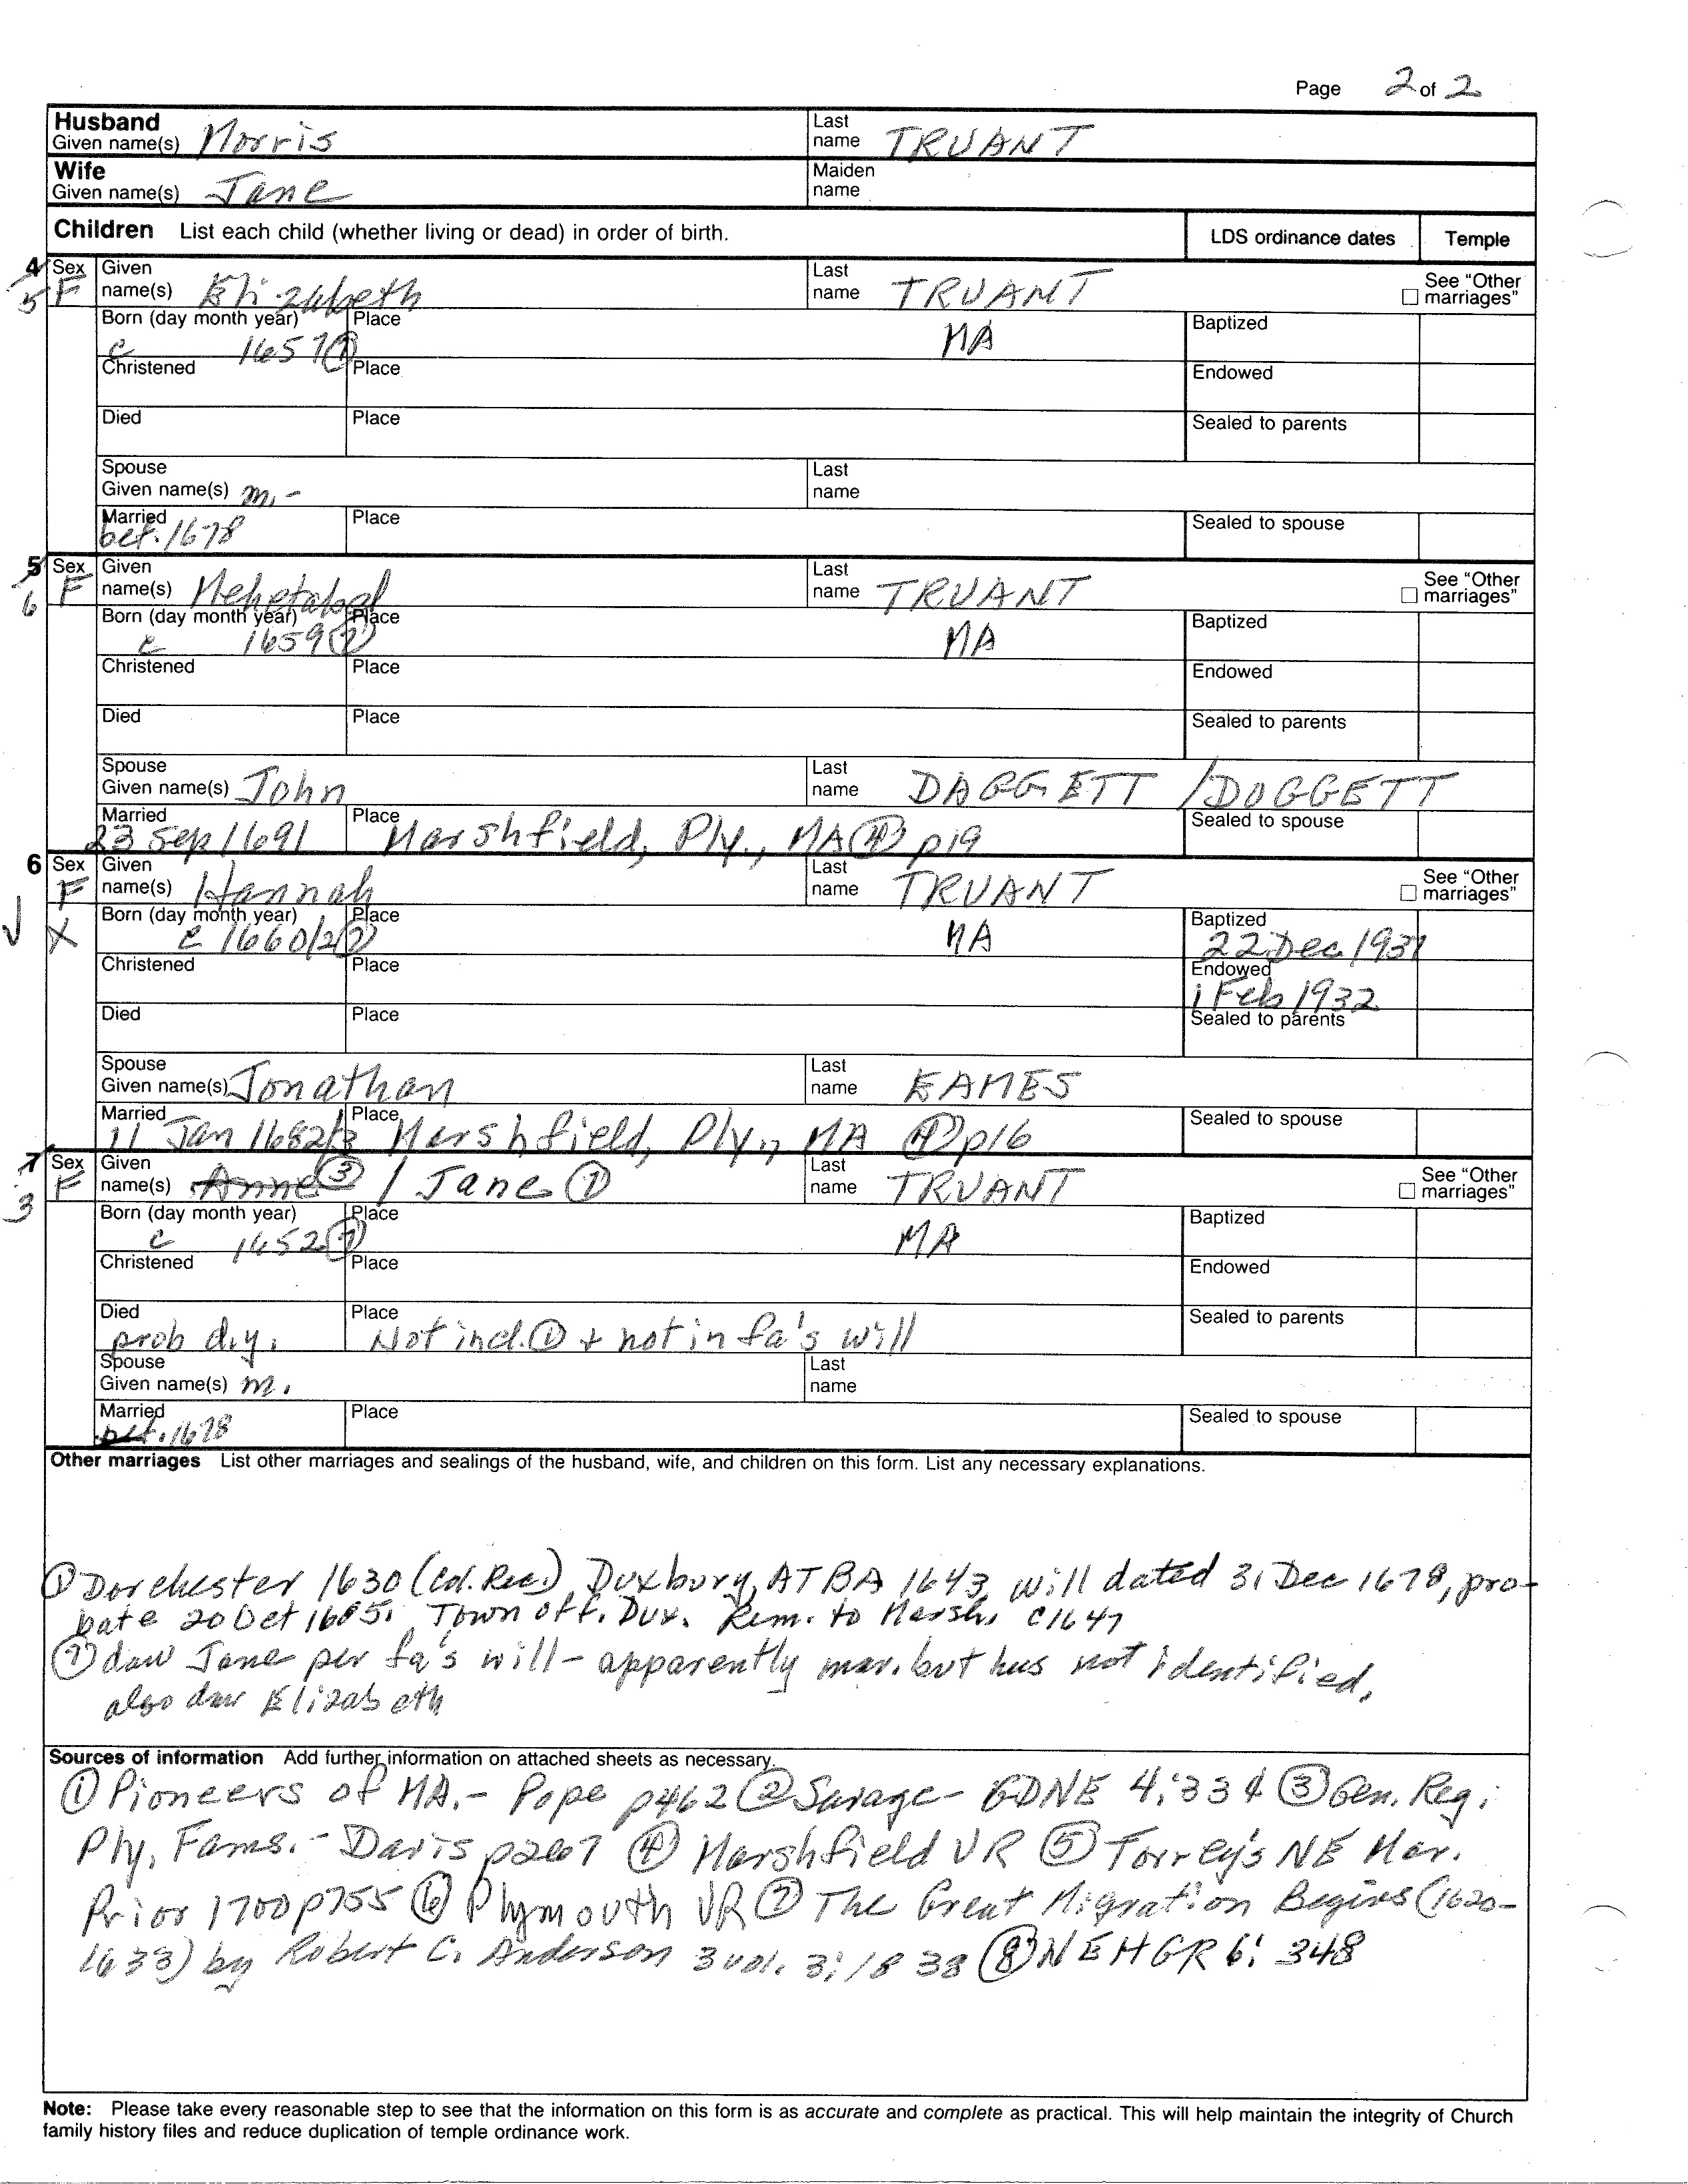 Page 2 of 2
Husband
Given name(s) Morris Last name TRUANT
Wife
Given name(s) Jane Maiden name
Children List each child (whether living or dead) in order of birth. LDS ordinance dates Temple
4 5 Sex F Given name(s) Elizabeth Last name TRUANT See "Other marriages"
Born (day month year) c 1657 ⑦ Place MA Baptized
Christened Place Endowed
Died Place Sealed to parents
Spouse Given name(s) m. - Last name
Married bef. 1678 Place Sealed to spouse
5 6 Sex F Given name(s) Mehetabel Last name TRUANT See "Other marriages"
Born (day month year) c 1659 ⑦ Place MA Baptized
Christened Place Endowed
Died Place Sealed to parents
Spouse Given name(s) John Last name DAGGETT / DOGGETT
Married 23 Sep 1691 Place Marshfield, Ply., MA ④ p19 Sealed to spouse
6 Sex F X Given name(s) Hannah Last name TRUANT See "Other marriages"
Born (day month year) c 1660/2 ⑦ Place MA Baptized 22 Dec 1931
Christened Place Endowed 1 Feb 1932
Died Place Sealed to parents
Spouse Given name(s) Jonathan Last name EAMES
Married 11 Jan 1682/3 Place Marshfield, Ply., MA ④ p16 Sealed to spouse
7 3 Sex F Given name(s) Anne ③ / Jane ⑦ Last name TRUANT See "Other marriages"
Born (day month year) c 1652 ⑦ Place MA Baptized
Christened Place Endowed
Died prob d.y. Place Not incl. ① + not in fa's will Sealed to parents
Spouse Given name(s) m. Last name
Married bef. 1678 Place Sealed to spouse
Other marriages List other marriages and sealings of the husband, wife, and children on this form. List any necessary explanations.
① Dorchester 1630 (Col. Rec.), Duxbury, ATBA 1643, will dated 31 Dec 1678, pro-
bate 20 Oct 1685. Town off. Dux. Rem. to Marsh. c1647
⑦ dau Jane per fa's will - apparently mar. but hus not identified,
also dau Elizabeth
Sources of information Add further information on attached sheets as necessary.
① Pioneers of MA. - Pope p462 ② Savage - GDNE 4:334 ③ Gen. Reg.
Ply. Fams. - Davis p267 ④ Marshfield VR ⑤ Torrey's NE Mar.
Prior 1700 p755 ⑥ Plymouth VR ⑦ The Great Migration Begins (1620-
1633) by Robert C. Anderson 3 vol. 3:1838 ⑧ NEHGR 6:348
Note: Please take every reasonable step to see that the information on this form is as accurate and complete as practical. This will help maintain the integrity of Church
family history files and reduce duplication of temple ordinance work.